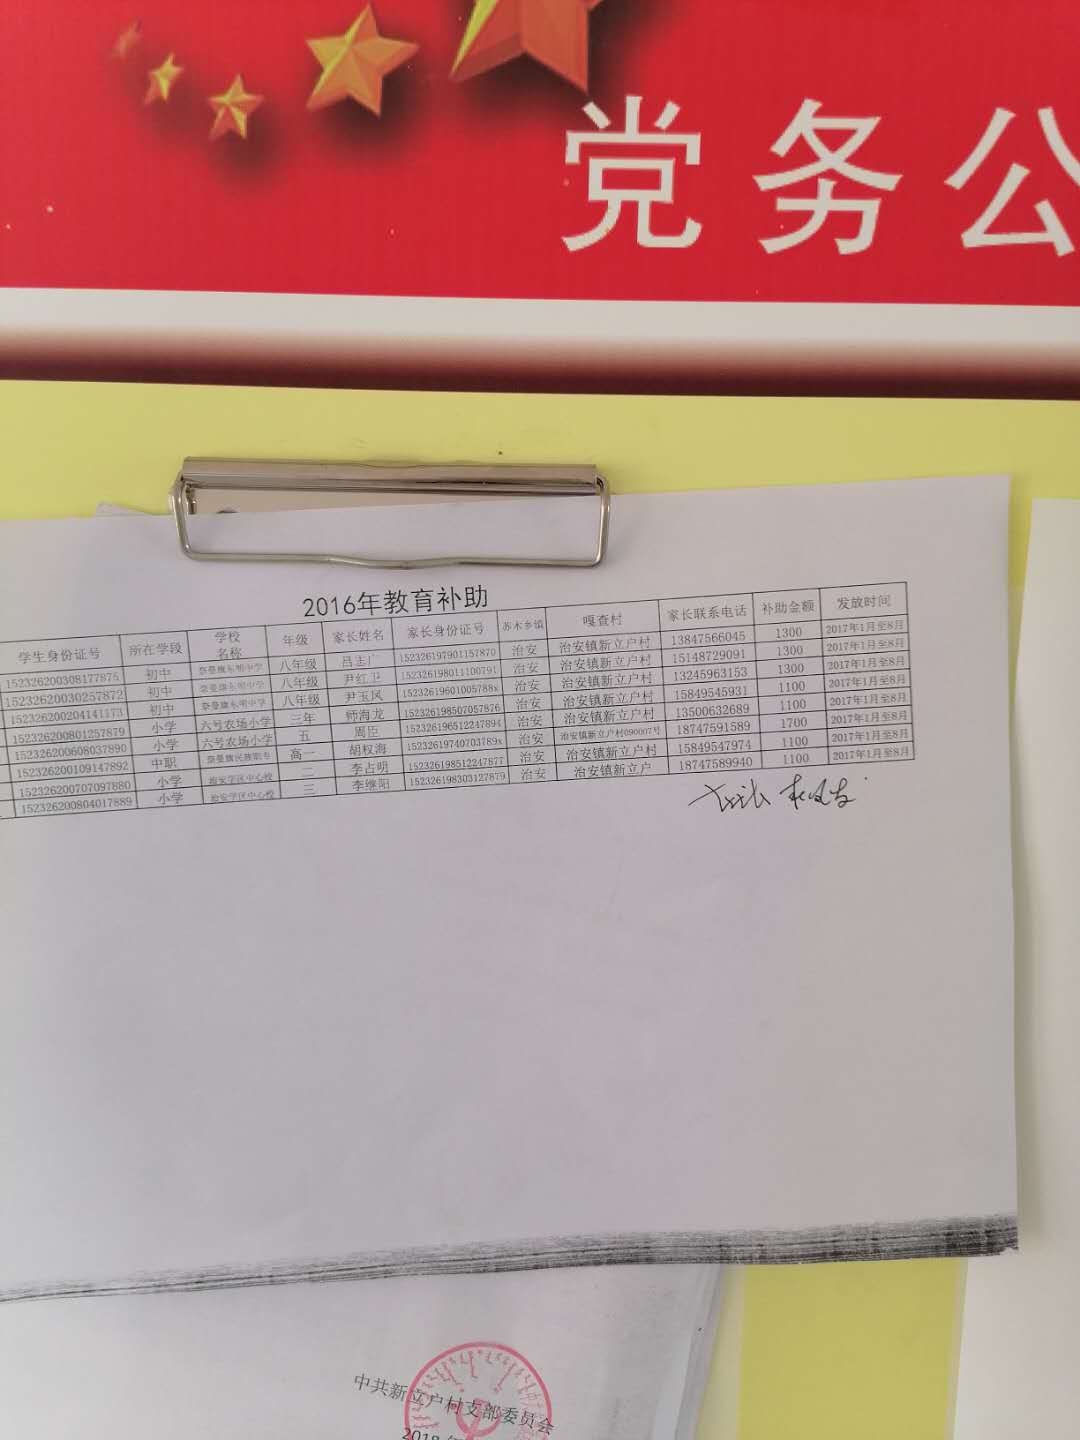 党务公
2016年教育补助
学生身份证号 所在学段 学校名称 年级 家长姓名 家长身份证号 苏木乡镇 嘎查村 家长联系电话 补助金额 发放时间
152326200308177875 初中 奈曼旗东明中学 八年级 吕志广 152326197901157870 治安 治安镇新立户村 13847566045 1300 2017年1月至8月
15232620030257872 初中 奈曼旗东明中学 八年级 尹红卫 152326198011100791 治安 治安镇新立户村 15148729091 1300 2017年1月至8月
152326200204141173 初中 奈曼旗东明中学 八年级 尹玉凤 15232619601005788x 治安 治安镇新立户村 13245963153 1300 2017年1月至8月
152326200801257879 小学 六号农场小学 三年 师海龙 152326198507057876 治安 治安镇新立户村 15849545931 1100 2017年1月至8月
152326200608037890 小学 六号农场小学 五 周臣 152326196512247894 治安 治安镇新立户村 13500632689 1100 2017年1月至8月
152326200109147892 中职 奈曼旗民族职专 高一 胡权海 15232619740703789x 治安 治安镇新立户村090007号 18747591589 1700 2017年1月至8月
152326200707097880 小学 治安学区中心校 二 李占明 152326198512247877 治安 治安镇新立户村 15849547974 1100 2017年1月至8月
152326200804017889 小学 治安学区中心校 三 李继阳 152326198303127879 治安 治安镇新立户 18747589940 1100 2017年1月至8月
中共新立户村支部委员会